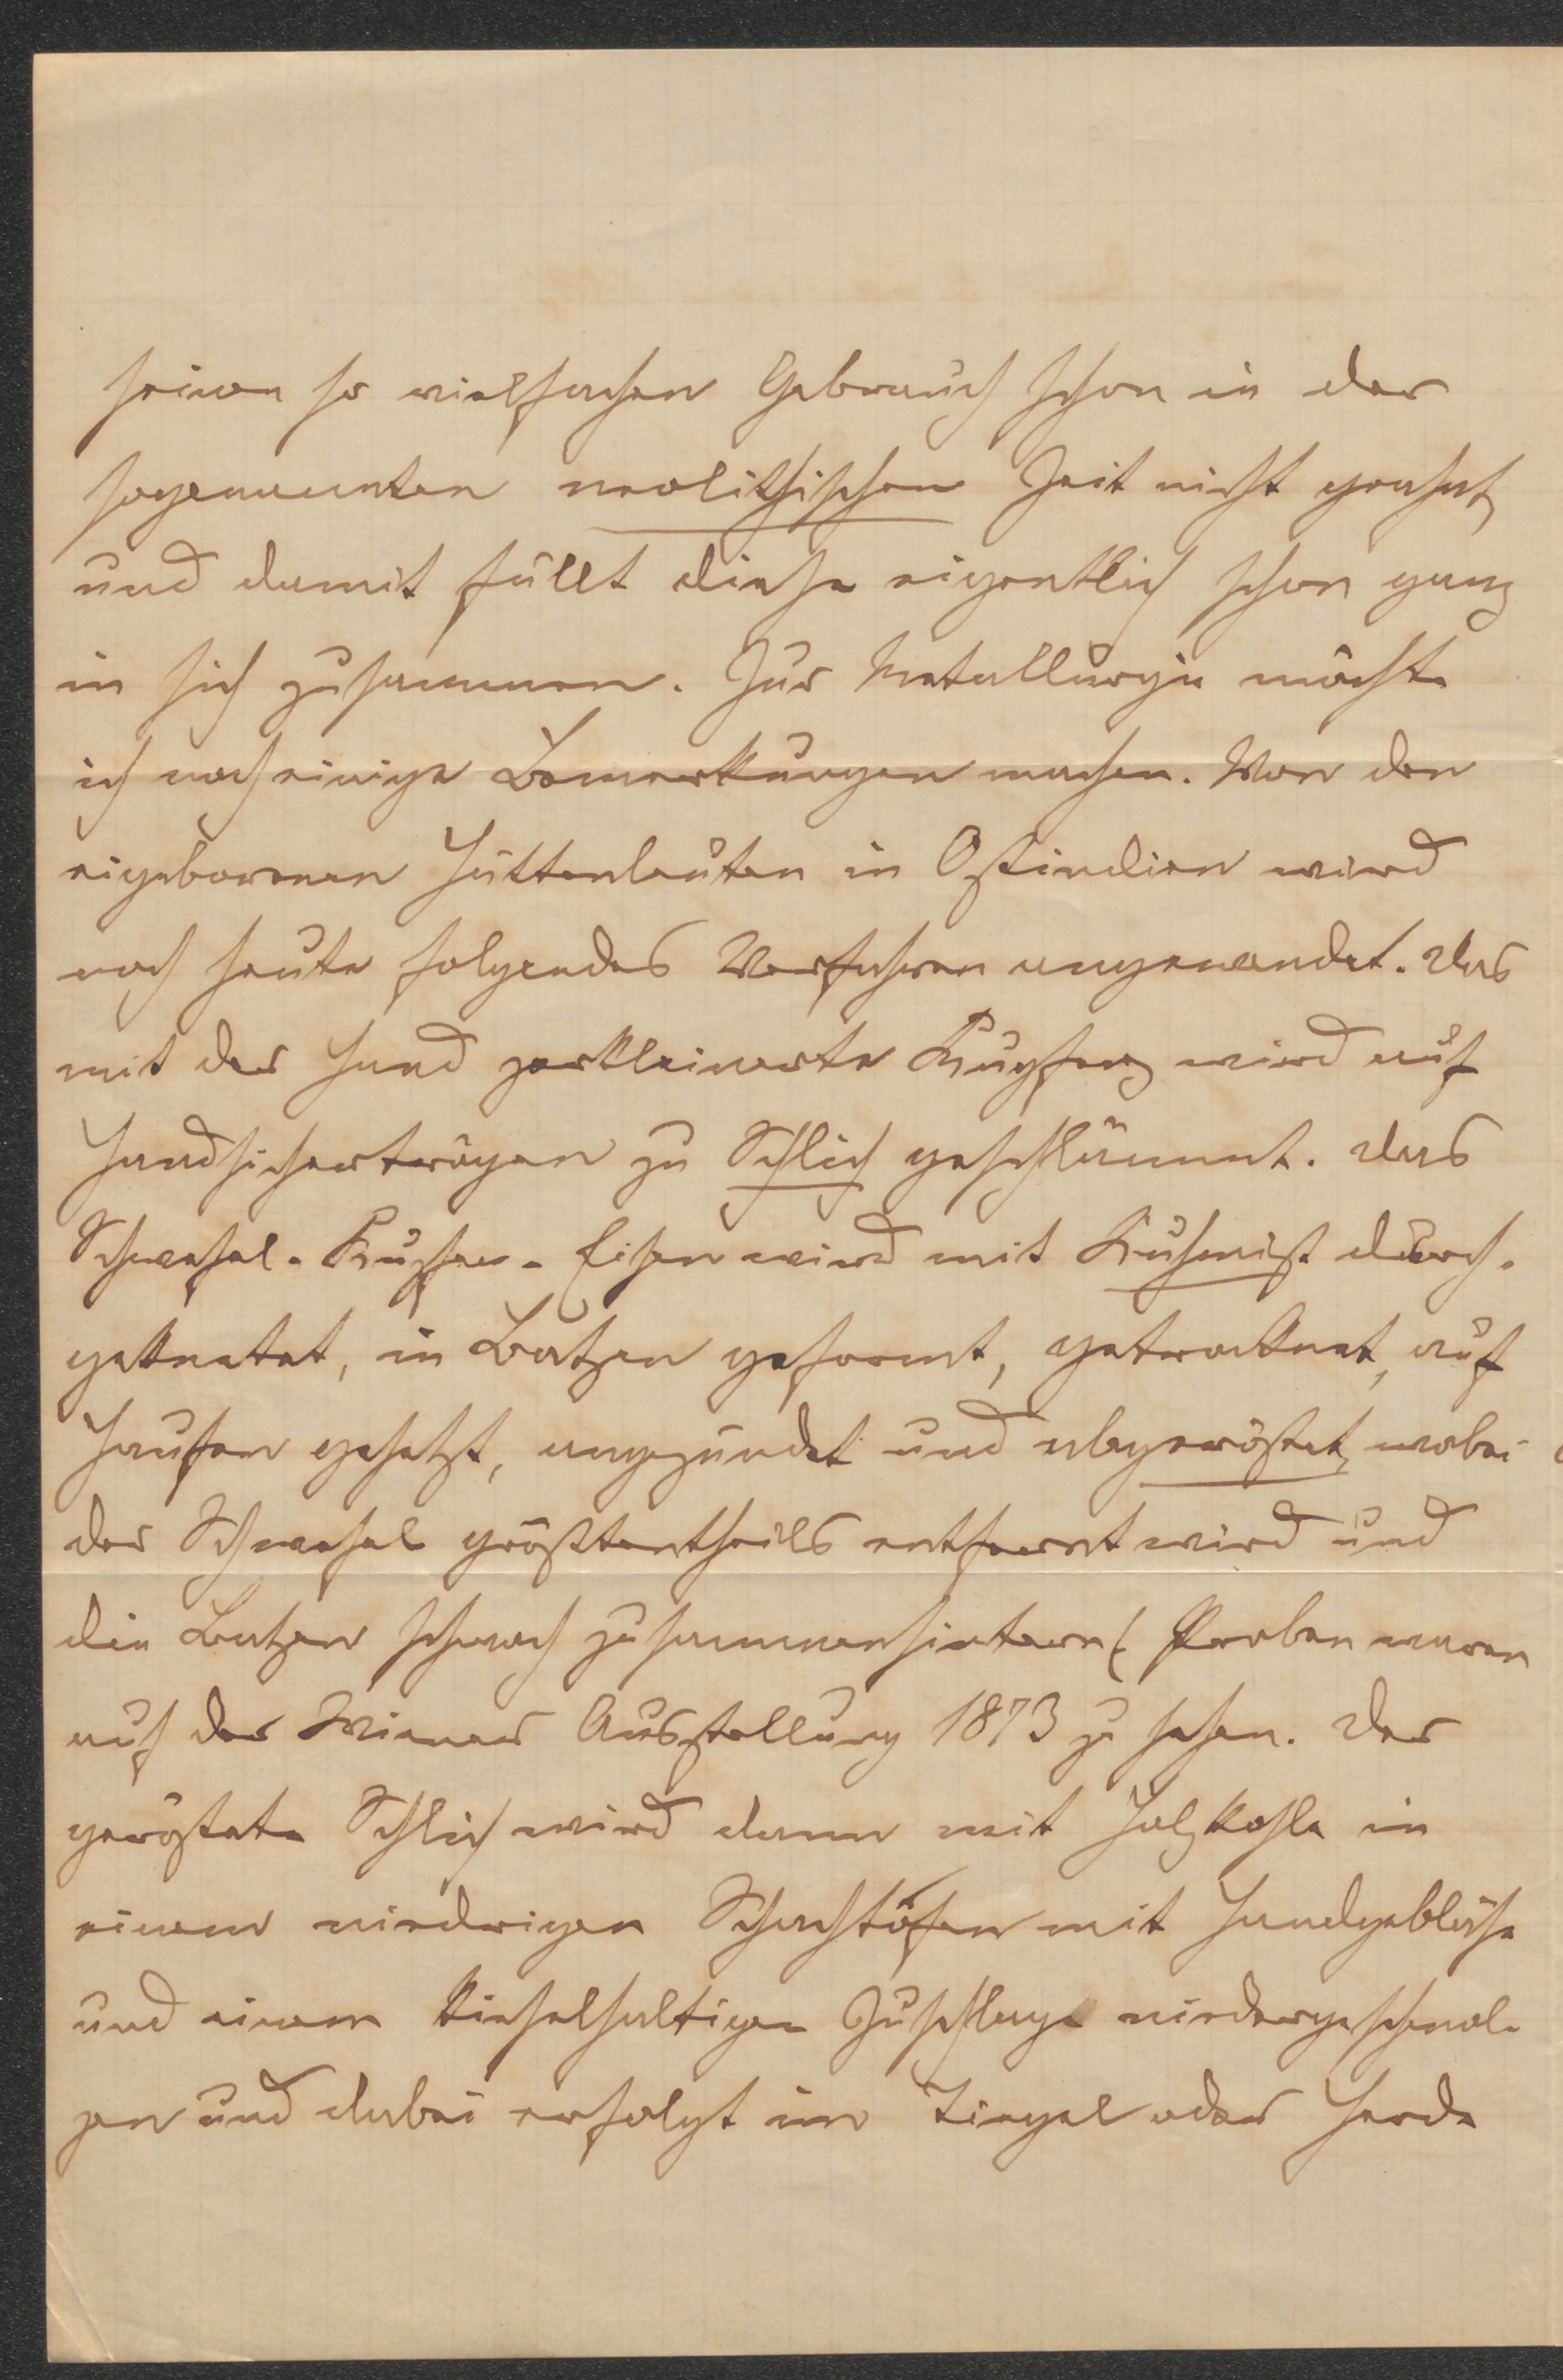 seinen so vielfachen Gebrauch schon in der
sogenannten neolithischen Zeit nicht geahnt,
und damit fällt diese eigentlich schon ganz
in sich zusammen. Zur Metallurgie möchte
ich noch einige Bemerkungen machen. Von den
eigeborenen Hüttenleuten in Ostindien wird
noch heute folgendes Verfahren angewandet. Das
mit der Hand zerkleinerte Kupferz wird auf
Handsichertrögen zu Schlich geschlämmt. Das
Schwefel-Kupfer-Eisen wird mit Kuhmist durch-
geknetet, in Batzen geformt, getrocknet, auf
Haufen gesetzt, angezündet und abgeröstet, wobei
der Schwefel größtentheils entfernt wird und
die Batzen schwach zusammensintern (Proben waren
auf der Wiener Ausstellung 1873 zu sehen. Der
geröstete Schlich wird dann mit Holzkohle in
einem niedrigen Schachtofen mit Handgebläse
und einem kieselhaltigen Zuschlage niedergeschmol-
zen und dabei erfolgt im Tiegel oder Herde